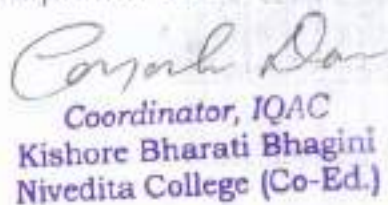 Coordinator, IQAC
Kishore Bharati Bhagini
Nivedita College (Co-Ed.)